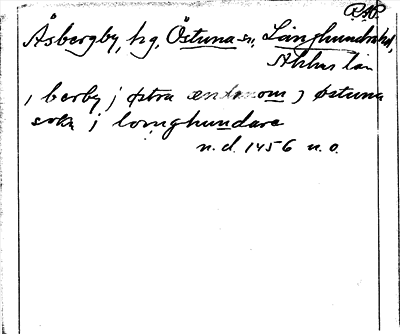 RAP.
Åsbergby, hg, Östuna sn, Långhundra hd,
län
, berby j østra endanom j østuna
sokn j longhundare
n.d. 1456 u.o.